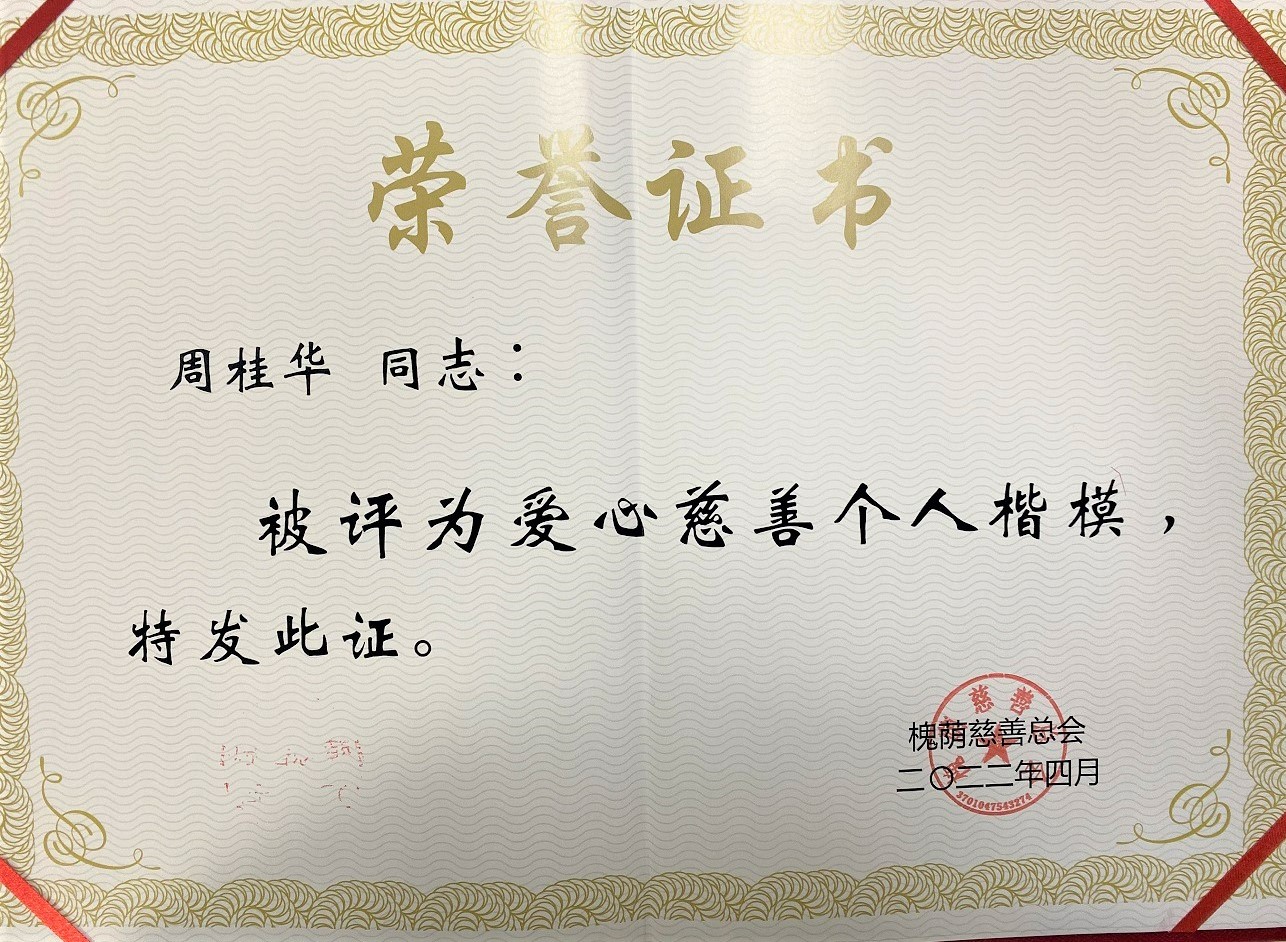 荣誉证书
周桂华 同志：
被评为爱心慈善个人楷模，
特发此证。
慈善
槐荫慈善总会
二〇二二年四月
3701047543274